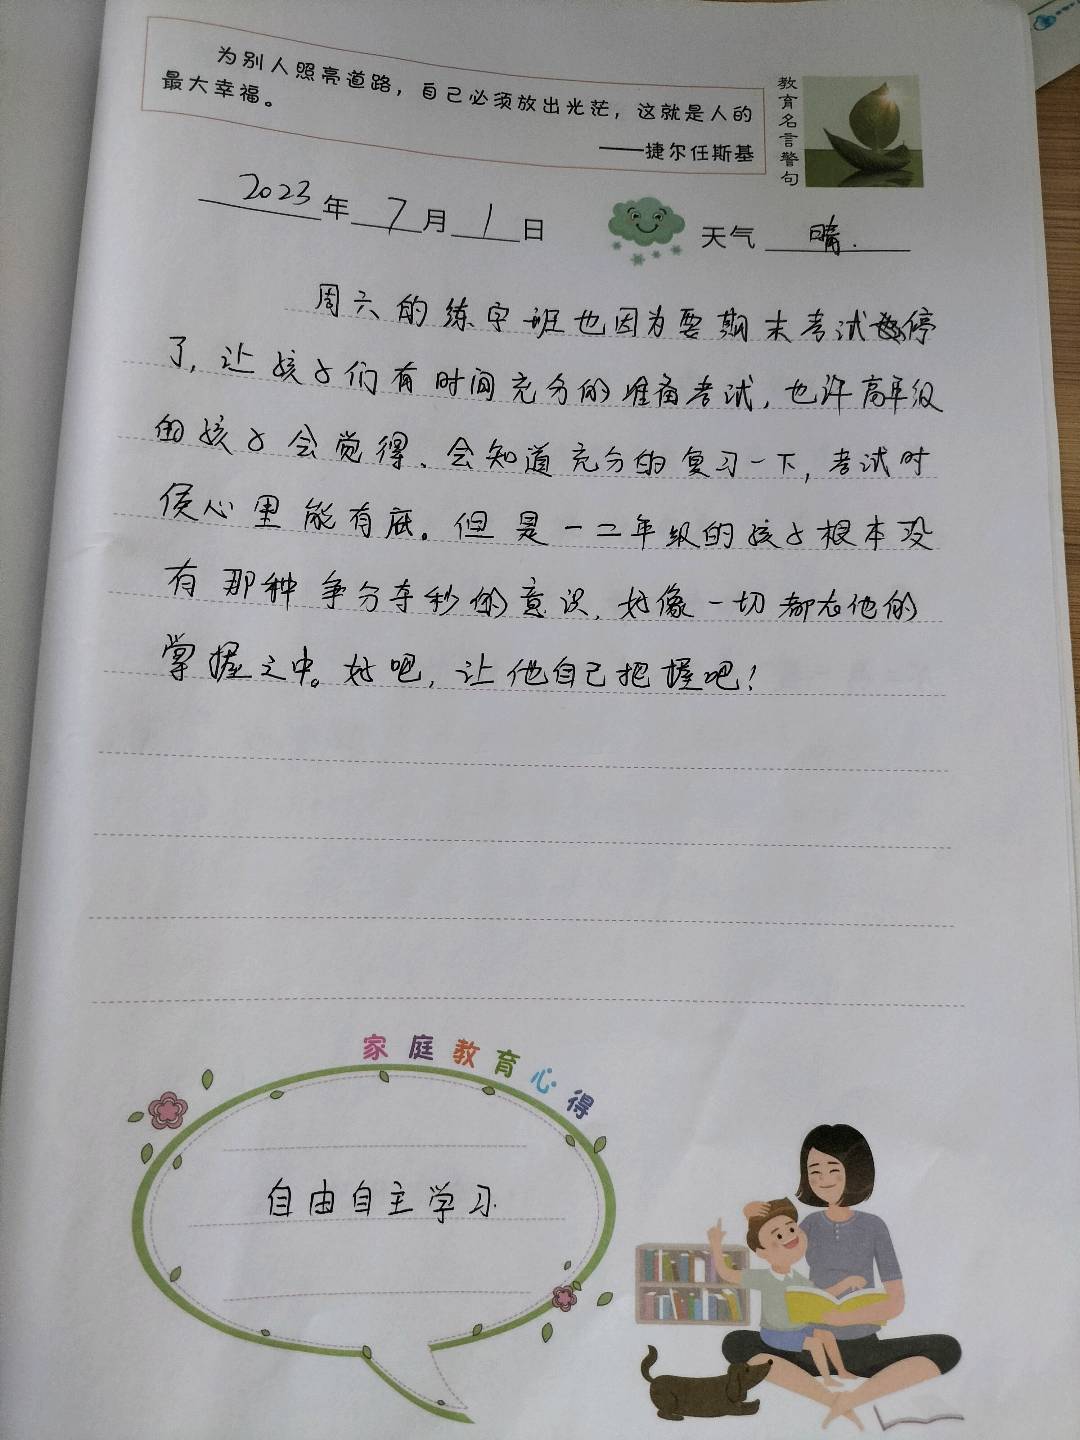 为别人照亮道路，自己必须放出光茫，这就是人的
最大幸福。
——捷尔任斯基
教育名言警句
2023年7月1日
天气 晴.
周六的练字班也因为要期末考试停
了,让孩子们有时间充分的准备考试,也许高年级
的孩子会觉得、会知道充分的复习一下,考试时
侯心里能有底。但是一二年级的孩子根本没
有那种争分夺秒的意识,好像一切都在他的
掌握之中。好吧,让他自己把握吧!
家庭教育心得
自由自主学习.